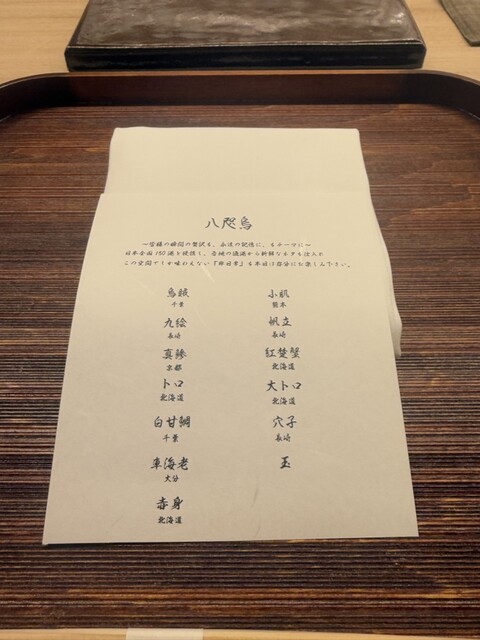 八咫烏
〜皆様の瞬間の贅沢を、永遠の記憶に、をテーマに〜
日本全国150港と提携し、各地の漁港から新鮮なネタを仕入れ
この空間でしか味わえない『非日常』を本日は存分にお楽しみ下さい。
烏賊
千葉
九絵
長崎
真鯵
京都
トロ
北海道
白甘鯛
千葉
車海老
大分
赤身
北海道
小肌
熊本
帆立
長崎
紅楚蟹
北海道
大トロ
北海道
穴子
長崎
玉